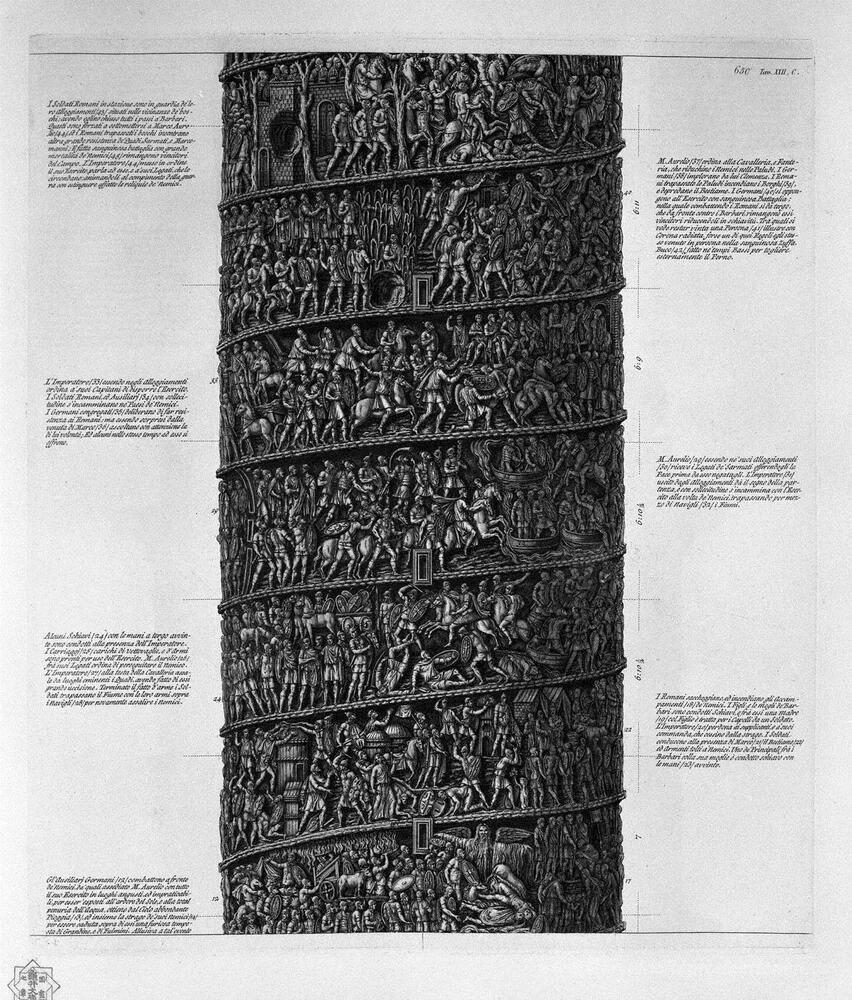 650 Tav. XIII. C.
I Soldati Romani in stazione sono in guardia de' lo-
ro alloggiamenti /43/ situati nelle vicinanze de' bos-
chi: avendo eglino chiuso tutti i passi a' Barbari.
Questi sono forzati a sottomettersi a Marco Aure-
lio /44/, ed i Romani trapassati i boschi incontrano
altra grande resistenza de' Quadi, Sarmati, e Marco-
manni: E fatta sanguinosa battaglia con grande
mortalità de' Nemici, /45/ rimangono vincitori
del Campo. L'Imperatore /44/ messo in ordine
il suo Esercito parla ad esso, e a' suoi Legati, che lo
circondano, animandoli al compimento della guer-
ra con estinguere affatto le reliquie de' Nemici.
M. Aurelio /37/ ordina alla Cavalleria, e Fante-
ria, che riduchino i Nemici nelle Paludi. I Ger-
mani /38/ implorano da lui Clemenza. I Roma-
ni trapassate le Paludi incendiano i Borghi /39/,
e depredano il Bestiame. I Germani /40/ si oppon-
gono all'Esercito con sanguinosa Battaglia;
nella quale combattendo i Romani sì da tergo,
che da fronte contro i Barbari, rimangono essi
vincitori riducendoli in ischiavitù. Tra' quali si
vede restar vinta una Persona /41/ illustre con
Corona radiata, forse un di quei Regoli egli stes-
so venuto in persona nella sanguinosa Zuffa.
Buco /42/ fatto ne' tempi Bassi per togliere
esternamente il Perno.
42
L'Imperatore /33/ essendo negli alloggiamenti
ordina a' suoi Capitani di disporre l'Esercito.
I Soldati Romani, ed Ausiliarj /34/ con solleci-
tudine s'incamminano ne' Paesi de' Nemici.
I Germani congregati /35/ deliberano di far resi-
stenza ai Romani; ma essendo sorpresi dalla
venuta di Marco /36/ ascoltano con attenzione la
di lui volontà; Ed alcuni nello stesso tempo ad esso si
offrono.
33
M. Aurelio /29/ essendo ne' suoi alloggiamenti
/30/ riceve i Legati de' Sarmati offerendogli la
Pace prima da esso negatagli. L'Imperatore /31/
uscito dagli Alloggiamenti dà il segno della par-
tenza, e con sollecitudine s'incammina con l'Eser-
cito alla volta de' Nemici, trapassando per mez-
zo di Navigli /32/ i Fiumi.
29
Alcuni Schiavi /24/ con le mani a tergo avvin-
te sono condotti alla presenza dell'Imperatore.
I Carriaggi /25/ carichi di vettovaglie, e d'Armi
sono pronti per uso dell'Esercito. M. Aurelio /26/
frà suoi Legati ordina di perseguitare il Nemico.
L'Imperatore /27/ alla testa della Cavalleria assa-
le da luoghi eminenti i Quadi, avendo fatto di essi
grande uccisione. Terminato il fatto d'armi i Sol-
dati trapassano il Fiume con le loro armi sopra
i Navigli /28/ per novamente assalire i nemici.
24
I Romani saccheggiano, ed incendiano gli Accam-
pamenti /18/ de' Nemici. I Figli, e le mogli de' Bar-
bari sono condotti Schiavi, e frà essi una Madre
/19/ col Figlio è tratto per i Capelli da un Soldato.
L'Imperatore /20/ perdona ai supplicanti, e a' suoi
commanda, che cessino dalla strage. I Soldati
conducono alla presenza di Marco /21/ il Bestiame, /22/
ed Armenti tolti a' Nemici. Uno de' Principali frà i
Barbari colla sua moglie è condotto schiavo con
le mani /23/ avvinte.
22
7
17
Gl'Ausiliarj Germani /12/ combattono a fronte
de' Nemici, da' quali assediato M. Aurelio con tutto
il suo Esercito in luoghi angusti, ed impraticabi-
li, per esser esposti all'ardore del Sole, e alla total
penuria dell'Acqua, ottiene dal Cielo abbondante
Pioggia /13/, ed insieme la strage de' suoi Nemici /14/
per essere caduta sopra di essi una furiosa tempe-
sta di Grandine, e di Fulmini. Allusiva a tal evento
12